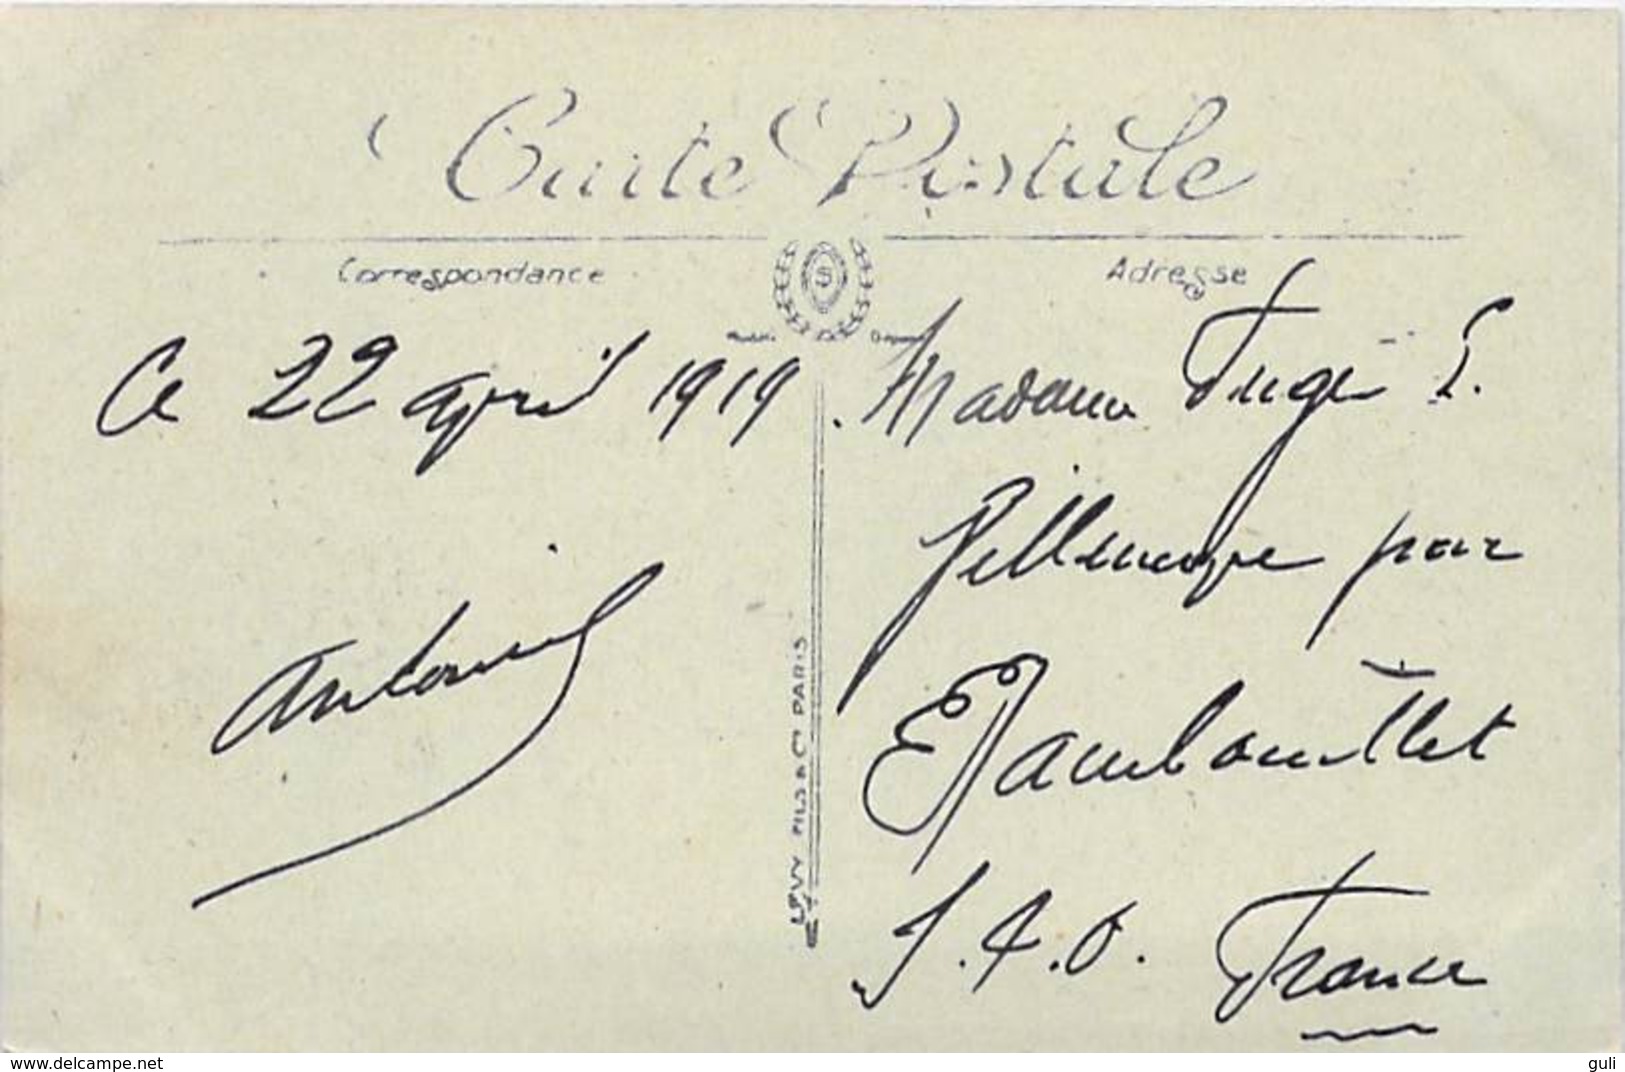 Carte Postale
Correspondance
Adresse
Ce 22 april 1919.
Antoine
LEVY FILS & Cie PARIS
Madame Fugé L.
Villeneuve par
Rambouillet
S. & O. France
www.delcampe.net
guli